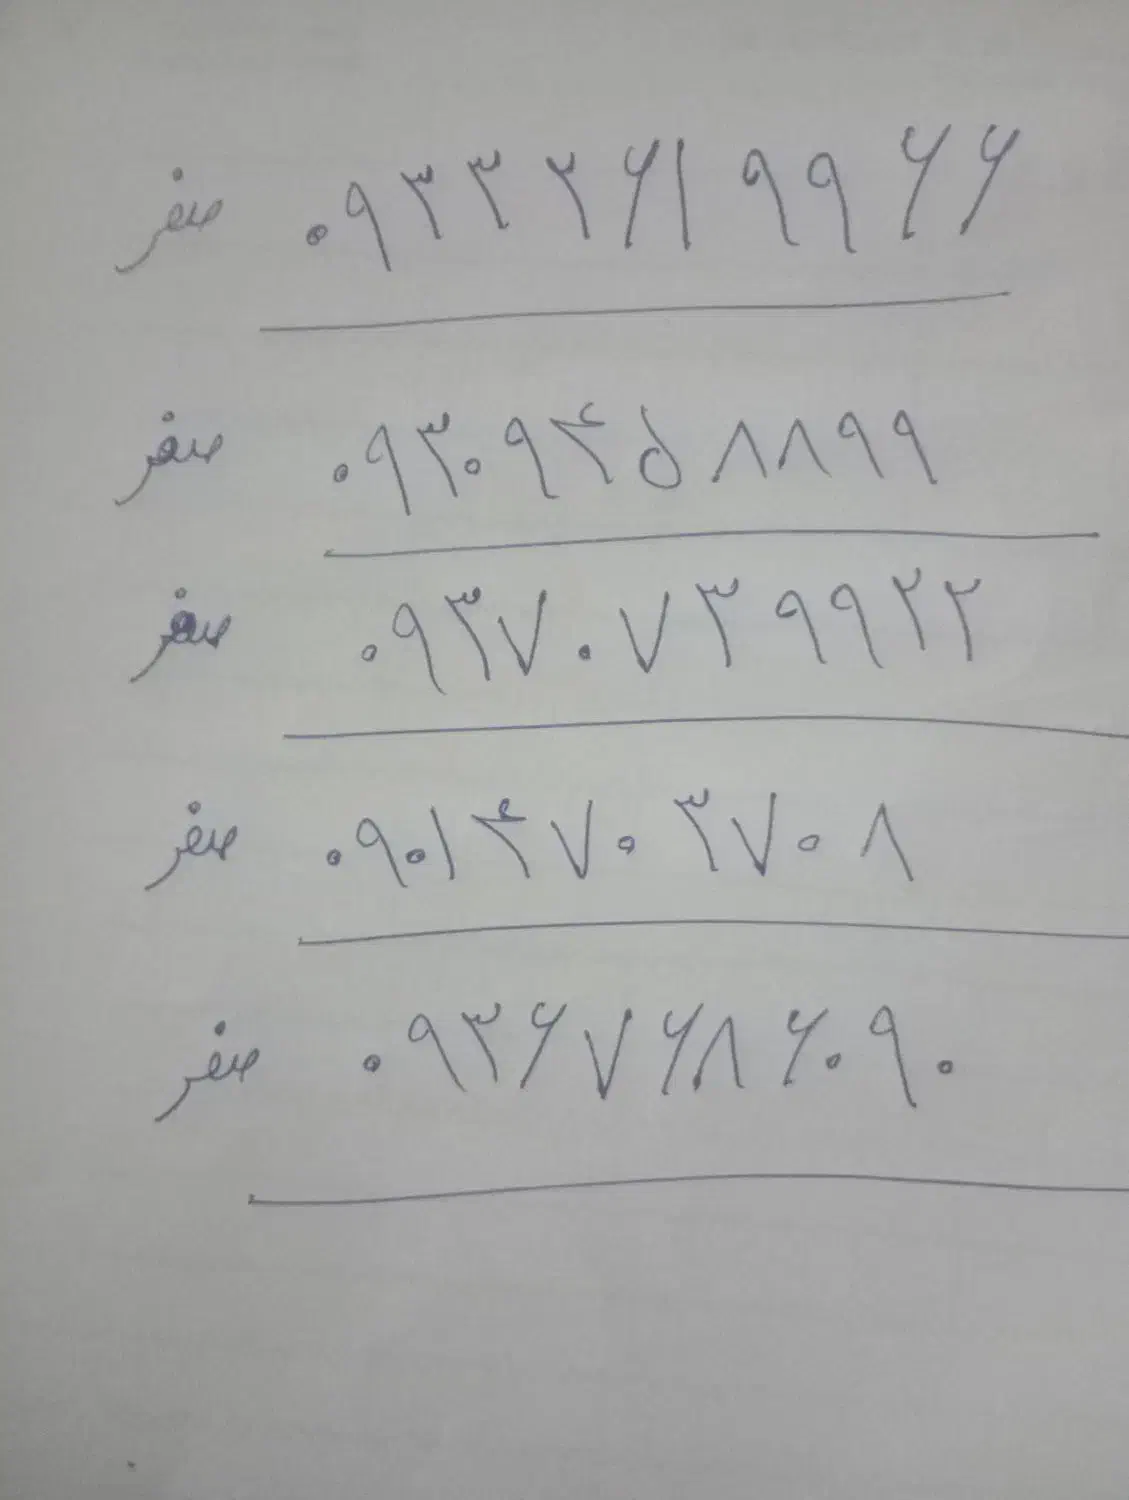 صفر ۰۹۳۳۲۶۱۹۹۶۶
صفر ۰۹۳۰۹۴۵۸۸۹۹
صفر ۰۹۳۷۰۷۳۹۹۲۲
صفر ۰۹۰۱۴۷۰۳۷۰۸
صفر ۰۹۳۶۷۶۸۶۰۹۰